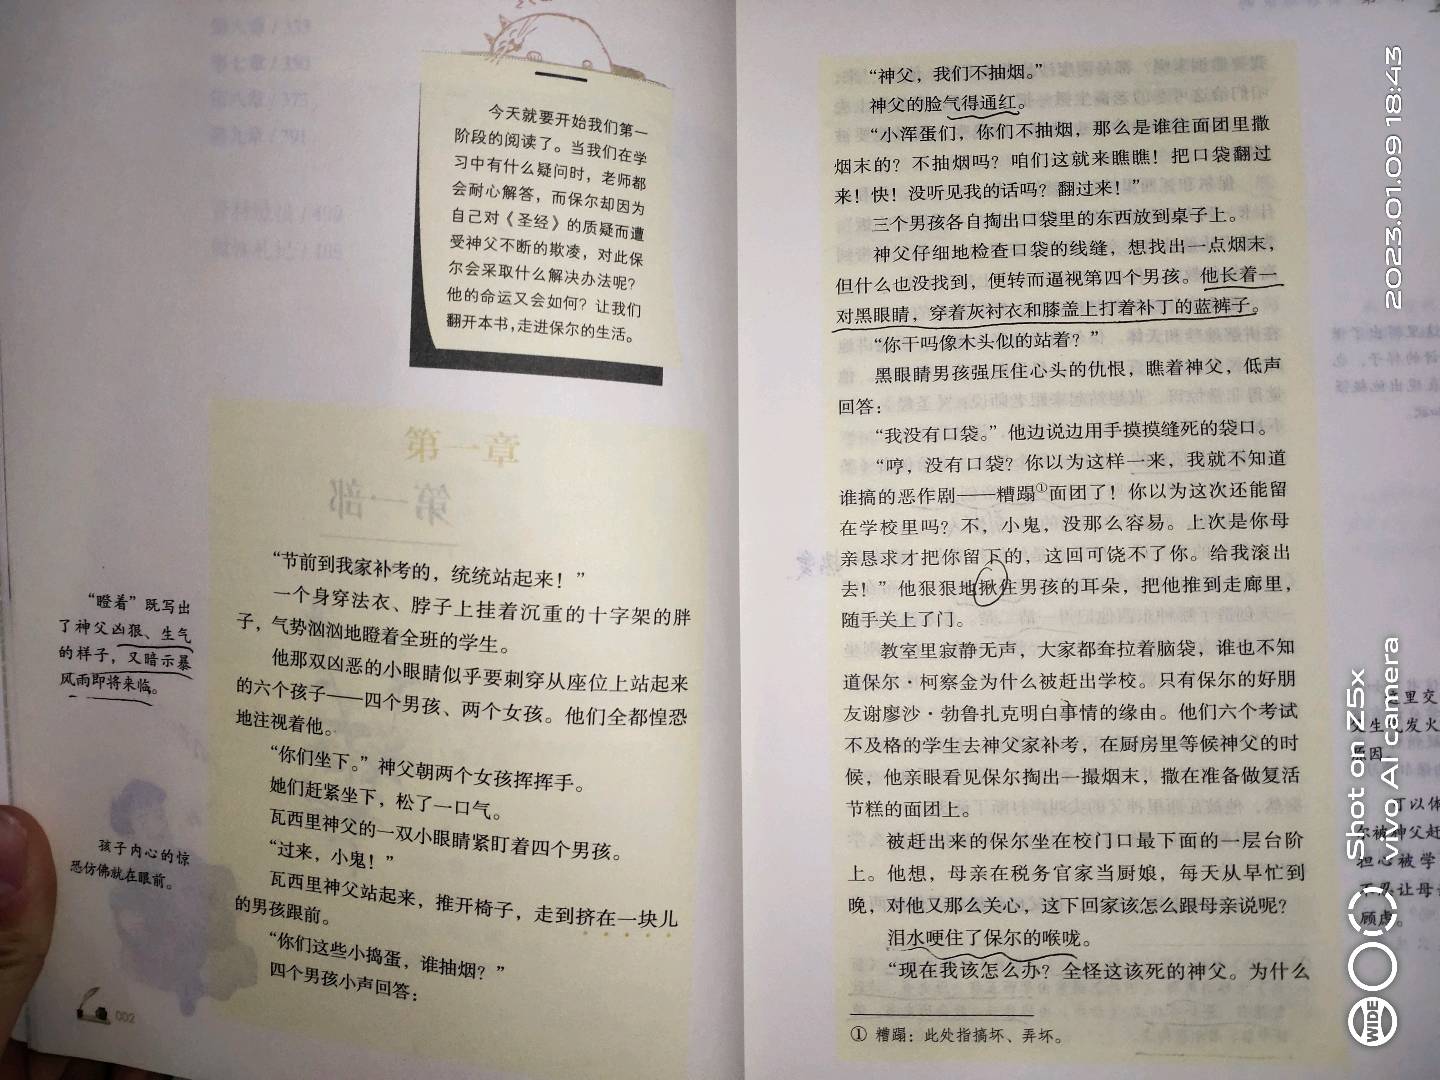 今天就要开始我们第一
阶段的阅读了。当我们在学
习中有什么疑问时，老师都
会耐心解答，而保尔却因为
自己对《圣经》的质疑而遭
受神父不断的欺凌，对此保
尔会采取什么解决办法呢？
他的命运又会如何？让我们
翻开本书，走进保尔的生活。
第一章
“节前到我家补考的，统统站起来！”
一个身穿法衣、脖子上挂着沉重的十字架的胖
子，气势汹汹地瞪着全班的学生。
他那双凶恶的小眼睛似乎要刺穿从座位上站起来
的六个孩子——四个男孩、两个女孩。他们全都惶恐
地注视着他。
“你们坐下。”神父朝两个女孩挥挥手。
她们赶紧坐下，松了一口气。
瓦西里神父的一双小眼睛紧盯着四个男孩。
“过来，小鬼！”
瓦西里神父站起来，推开椅子，走到挤在一块儿
的男孩跟前。
“你们这些小捣蛋，谁抽烟？”
四个男孩小声回答：
“瞪着”既写出
了神父凶狠、生气
的样子，又暗示暴
风雨即将来临。
孩子内心的惊
恐仿佛就在眼前。
002
“神父，我们不抽烟。”
神父的脸气得通红。
“小浑蛋们，你们不抽烟，那么是谁往面团里撒
烟末的？不抽烟吗？咱们这就来瞧瞧！把口袋翻过
来！快！没听见我的话吗？翻过来！”
三个男孩各自掏出口袋里的东西放到桌子上。
神父仔细地检查口袋的线缝，想找出一点烟末，
但什么也没找到，便转而逼视第四个男孩。他长着一
对黑眼睛，穿着灰衬衣和膝盖上打着补丁的蓝裤子。
“你干吗像木头似的站着？”
黑眼睛男孩强压住心头的仇恨，瞧着神父，低声
回答：
“我没有口袋。”他边说边用手摸摸缝死的袋口。
“哼，没有口袋？你以为这样一来，我就不知道
谁搞的恶作剧——糟蹋①面团了！你以为这次还能留
在学校里吗？不，小鬼，没那么容易。上次是你母
亲恳求才把你留下的，这回可饶不了你。给我滚出
去！”他狠狠地揪住男孩的耳朵，把他推到走廊里，
随手关上了门。
教室里寂静无声，大家都耷拉着脑袋，谁也不知
道保尔·柯察金为什么被赶出学校。只有保尔的好朋
友谢廖沙·勃鲁扎克明白事情的缘由。他们六个考试
不及格的学生去神父家补考，在厨房里等候神父的时
候，他亲眼看见保尔掏出一撮烟末，撒在准备做复活
节糕的面团上。
被赶出来的保尔坐在校门口最下面的一层台阶
上。他想，母亲在税务官家当厨娘，每天从早忙到
晚，对他又那么关心，这下回家该怎么跟母亲说呢？
泪水哽住了保尔的喉咙。
“现在我该怎么办？全怪这该死的神父。为什么
① 糟蹋：此处指搞坏、弄坏。
里交
发火
原因。
可以体
尔被神父赶
担心被学
让母
顾虑。
2023.01.09 18:43
Shot on Z5x
vivo AI camera
WIDE